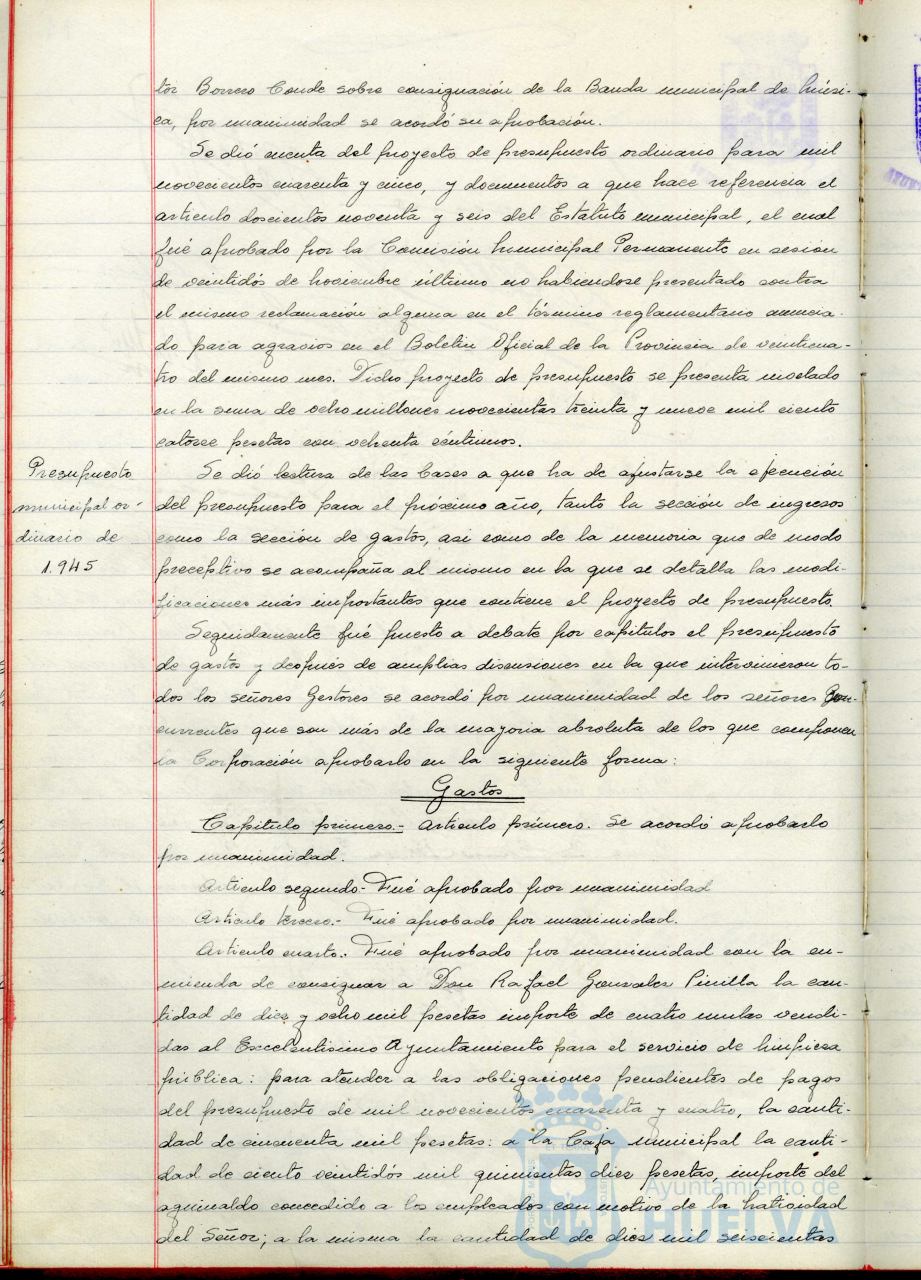 tor Borrero Conde sobre consignación de la Banda municipal de Músi-
ca, por unanimidad se acordó su aprobación.
Se dió cuenta del proyecto de presupuesto ordinario para mil
novecientos cuarenta y cinco, y documentos a que hace referencia el
articulo doscientos noventa y seis del Estatuto municipal, el cual
fué aprobado por la Comisión Municipal Permanente en sesion
de veintidós de Noviembre último no habiendose presentado contra
el mismo reclamación alguna en el término reglamentario anuncia-
do para agravios en el Boletin Oficial de la Provincia de veinticua-
tro del mismo mes. Dicho proyecto de presupuesto se presenta nivelado
en la suma de ocho millones novecientas treinta y nueve mil ciento
catorce pesetas con ochenta céntimos.
Presupuesto
municipal or-
dinario de
1.945
Se dió lectura de las Bases a que ha de ajustarse la ejecución
del presupuesto para el próximo año, tanto la sección de ingresos
como la sección de gastos, asi como de la memoria que de modo
preceptivo se acompaña al mismo en la que se detalla las modi-
ficaciones más importantes que contiene el proyecto de presupuesto.
Seguidamente fué puesto a debate por capitulos el presupuesto
de gastos y después de amplias discusiones en la que intervinieron to-
dos los señores Gestores se acordó por unanimidad de los señores Con-
currentes que son más de la mayoria absoluta de los que componen
la Corporación aprobarlo en la siguiente forma:
Gastos
Capitulo primero.- Articulo primero. Se acordó aprobarlo
por unanimidad.
Articulo segundo.- Fué aprobado por unanimidad
Articulo tercero.- Fué aprobado por unanimidad.
Articulo cuarto.- Fué aprobado por unanimidad con la en-
mienda de consignar a Don Rafael Gonzalez Pinilla la can-
tidad de diez y ocho mil pesetas importe de cuatro mulas vendi-
das al Excelentisimo Ayuntamiento para el servicio de limpieza
pública: para atender a las obligaciones pendientes de pagos
del presupuesto de mil novecientos cuarenta y cuatro, la canti-
dad de cincuenta mil pesetas: a la Caja municipal la canti-
dad de ciento veintidós mil quinientas diez pesetas, importe del
aguinaldo concedido a los empleados con motivo de la Natividad
del Señor; a la misma la cantidad de diez mil seiscientas
Ayuntamiento de
HUELVA